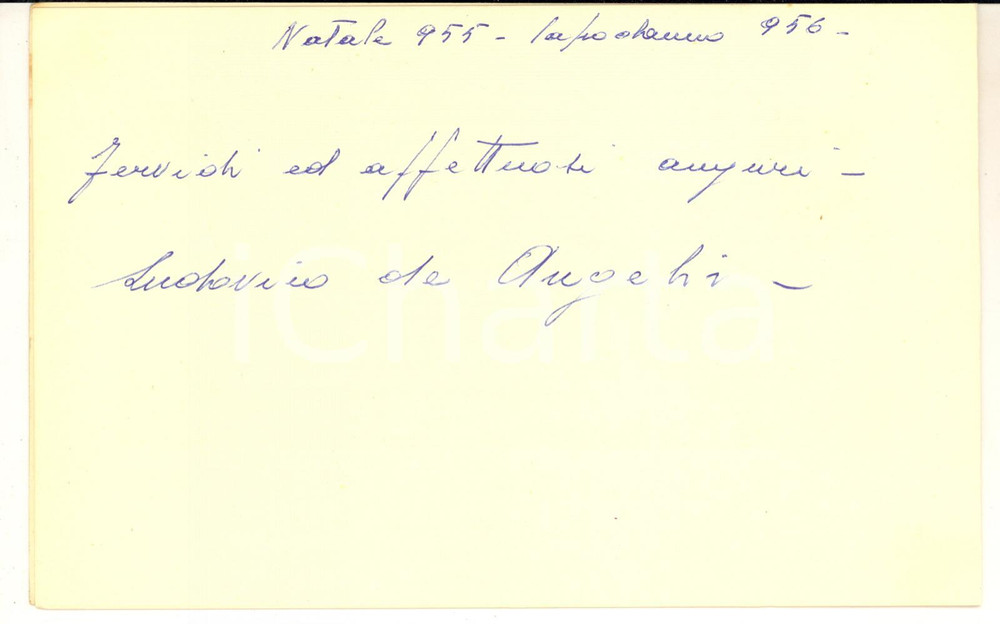 Natale 955 - Capodanno 956 -
Fervidi ed affettuosi auguri -
Ludovico de Angelis -
iCharta